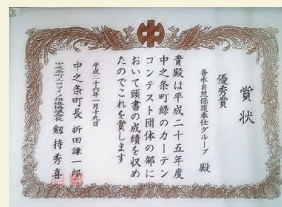 賞状
優秀賞
呑水自然保護奉仕グループ 殿
貴殿は平成二十五年度
中之条町緑のカーテン
コンテスト団体の部に
おいて頭書の成績を収め
たのでこれを賞します
平成二十六年一月十九日
中之条町長 折田謙一郎
剱持秀喜